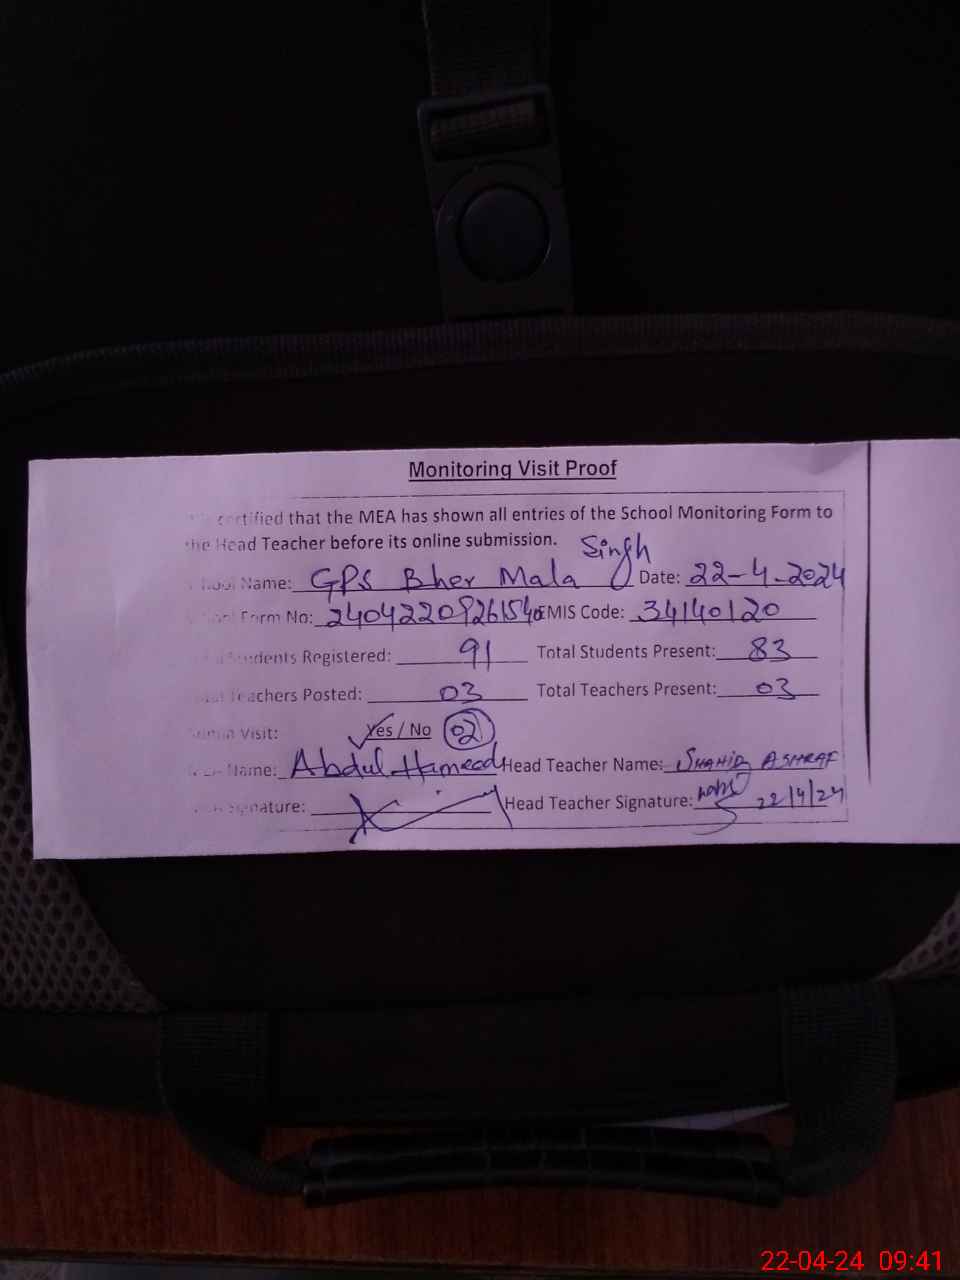 Monitoring Visit Proof
certified that the MEA has shown all entries of the School Monitoring Form to
the Head Teacher before its online submission.
School Name: GPS Bher Mala Singh Date: 22-4-2024
Form No: EMIS Code: 34140120
Students Registered: 91 Total Students Present: 83
Teachers Posted: 03 Total Teachers Present: 03
Visit: Yes / No 02
Name: Abdul Hameed Head Teacher Name: SHAHID ASHRAF
Signature: Head Teacher Signature: 22/4/24
22-04-24 09:41